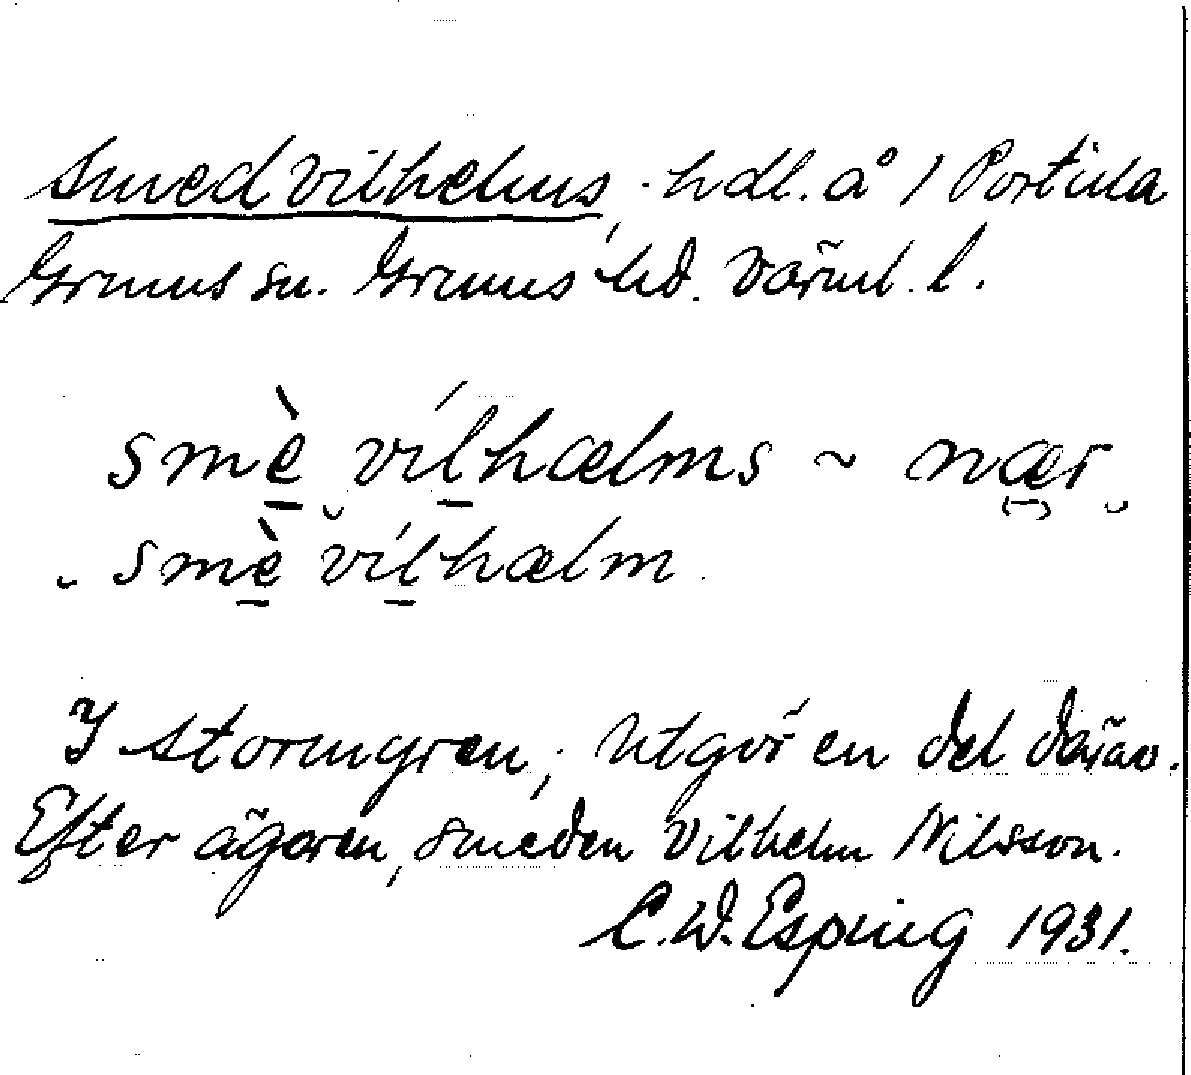 Smedvilhelms, hdl. å 1 Portila
Grums sn. Grums hd. Värml. l.
smè vílhælms ~ nær
smè vílhælm.
I Stormgren; utgör en del därav.
Efter ägaren, smeden Vilhelm Nilsson.
C.W. Esping 1931.